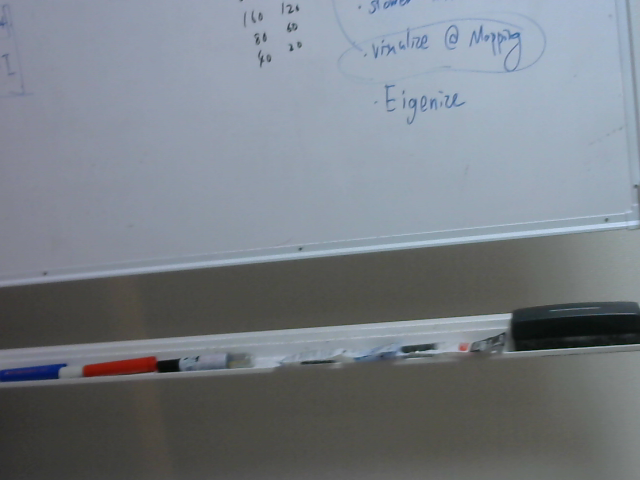 160 120
80 60
40 20
· slower
· visualize @ Mapping
· Eigenize